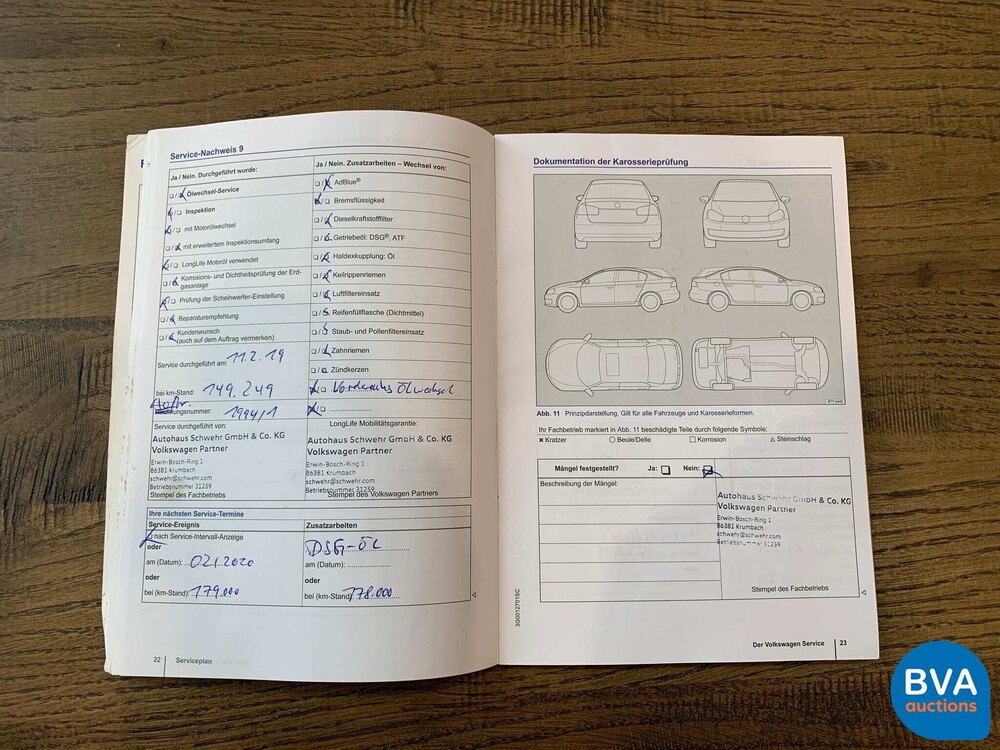 Service-Nachweis 9
Ja / Nein. Durchgeführt wurde:
Ölwechsel-Service
Inspektion
mit Motorölwechsel
mit erweitertem Inspektionsumfang
LongLife Motoröl verwendet
Korrosions- und Dichtheitsprüfung der Erd-
gasanlage
Prüfung der Scheinwerfer-Einstellung
Reparaturempfehlung
Kundenwunsch
(auch auf dem Auftrag vermerken)
Service durchgeführt am: 11.2.19
bei km-Stand: 149.249
Rechnungsnummer: 1994/1
Service durchgeführt von:
Autohaus Schwehr GmbH & Co. KG
Volkswagen Partner
Erwin-Bosch-Ring 1
86381 Krumbach
schwehr@schwehr.com
Betriebsnummer 31259
Stempel des Fachbetriebs
Ja / Nein. Zusatzarbeiten – Wechsel von:
AdBlue®
Bremsflüssigkeit
Dieselkraftstofffilter
Getriebeöl: DSG®, ATF
Haldexkupplung: Öl
Keilrippenriemen
Luftfiltereinsatz
Reifenfüllflasche (Dichtmittel)
Staub- und Pollenfiltereinsatz
Zahnriemen
Zündkerzen
Ölwechsel
LongLife Mobilitätsgarantie:
Autohaus Schwehr GmbH & Co. KG
Volkswagen Partner
Erwin-Bosch-Ring 1
86381 Krumbach
schwehr@schwehr.com
Betriebsnummer 31259
Stempel des Volkswagen Partners
Ihre nächsten Service-Termine
Service-Ereignis
nach Service-Intervall-Anzeige
oder
am (Datum): 02.2020
oder
bei (km-Stand): 179.000
Zusatzarbeiten
DSG-ÖL
am (Datum):
oder
bei (km-Stand) 178.000
22 Serviceplan
Dokumentation der Karosserieprüfung
Abb. 11 Prinzipdarstellung. Gilt für alle Fahrzeuge und Karosserieformen.
Ihr Fachbetrieb markiert in Abb. 11 beschädigte Teile durch folgende Symbole:
× Kratzer ○ Beule/Delle □ Korrosion △ Steinschlag
Mängel festgestellt? Ja: Nein:
Beschreibung der Mängel:
Autohaus Schwehr GmbH & Co. KG
Volkswagen Partner
Erwin-Bosch-Ring 1
86381 Krumbach
schwehr@schwehr.com
Betriebsnummer 31259
Stempel des Fachbetriebs
3G0012701SC
Der Volkswagen Service 23
BVA
auctions